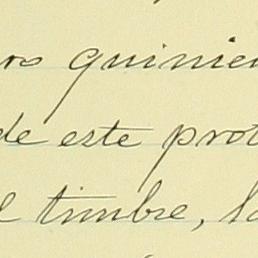 ro quinie
de este prot
l timbre, lo